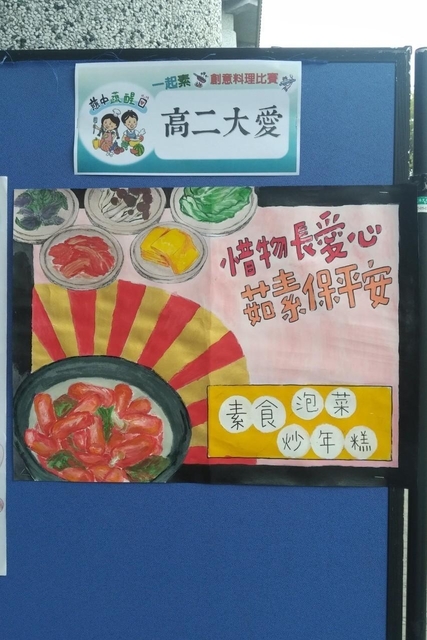 一起素 創意料理比賽
慈中蔬醒日
高二大愛
惜物長愛心
茹素保平安
素食泡菜
炒年糕